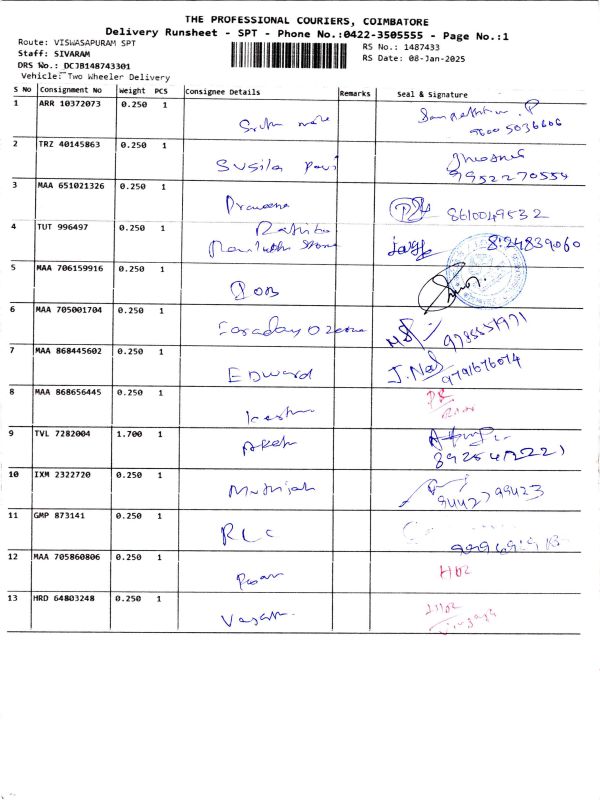 THE PROFESSIONAL COURIERS, COIMBATORE
Delivery Runsheet - SPT - Phone No.:0422-3505555 - Page No.:1
Route: VISWASAPURAM SPT
Staff: SIVARAM
DRS No.: DCJB148743301
Vehicle: Two Wheeler Delivery
RS No.: 1487433
RS Date: 08-Jan-2025
S No Consignment No Weight PCS Consignee Details Remarks Seal & Signature
1 ARR 10372073 0.250 1
2 TRZ 40145863 0.250 1 Susila 9952270554
3 MAA 651021326 0.250 1 Praveena 8610049532
4 TUT 996497 0.250 1
5 MAA 706159916 0.250 1 IOB
6 MAA 705001704 0.250 1 Faraday Ozone
7 MAA 868445602 0.250 1 EDward 9791676074
8 MAA 868656445 0.250 1
9 TVL 7282004 1.700 1
10 IXM 2322720 0.250 1 9442799423
11 GMP 873141 0.250 1 RLC
12 MAA 705860806 0.250 1
13 HRD 64803248 0.250 1